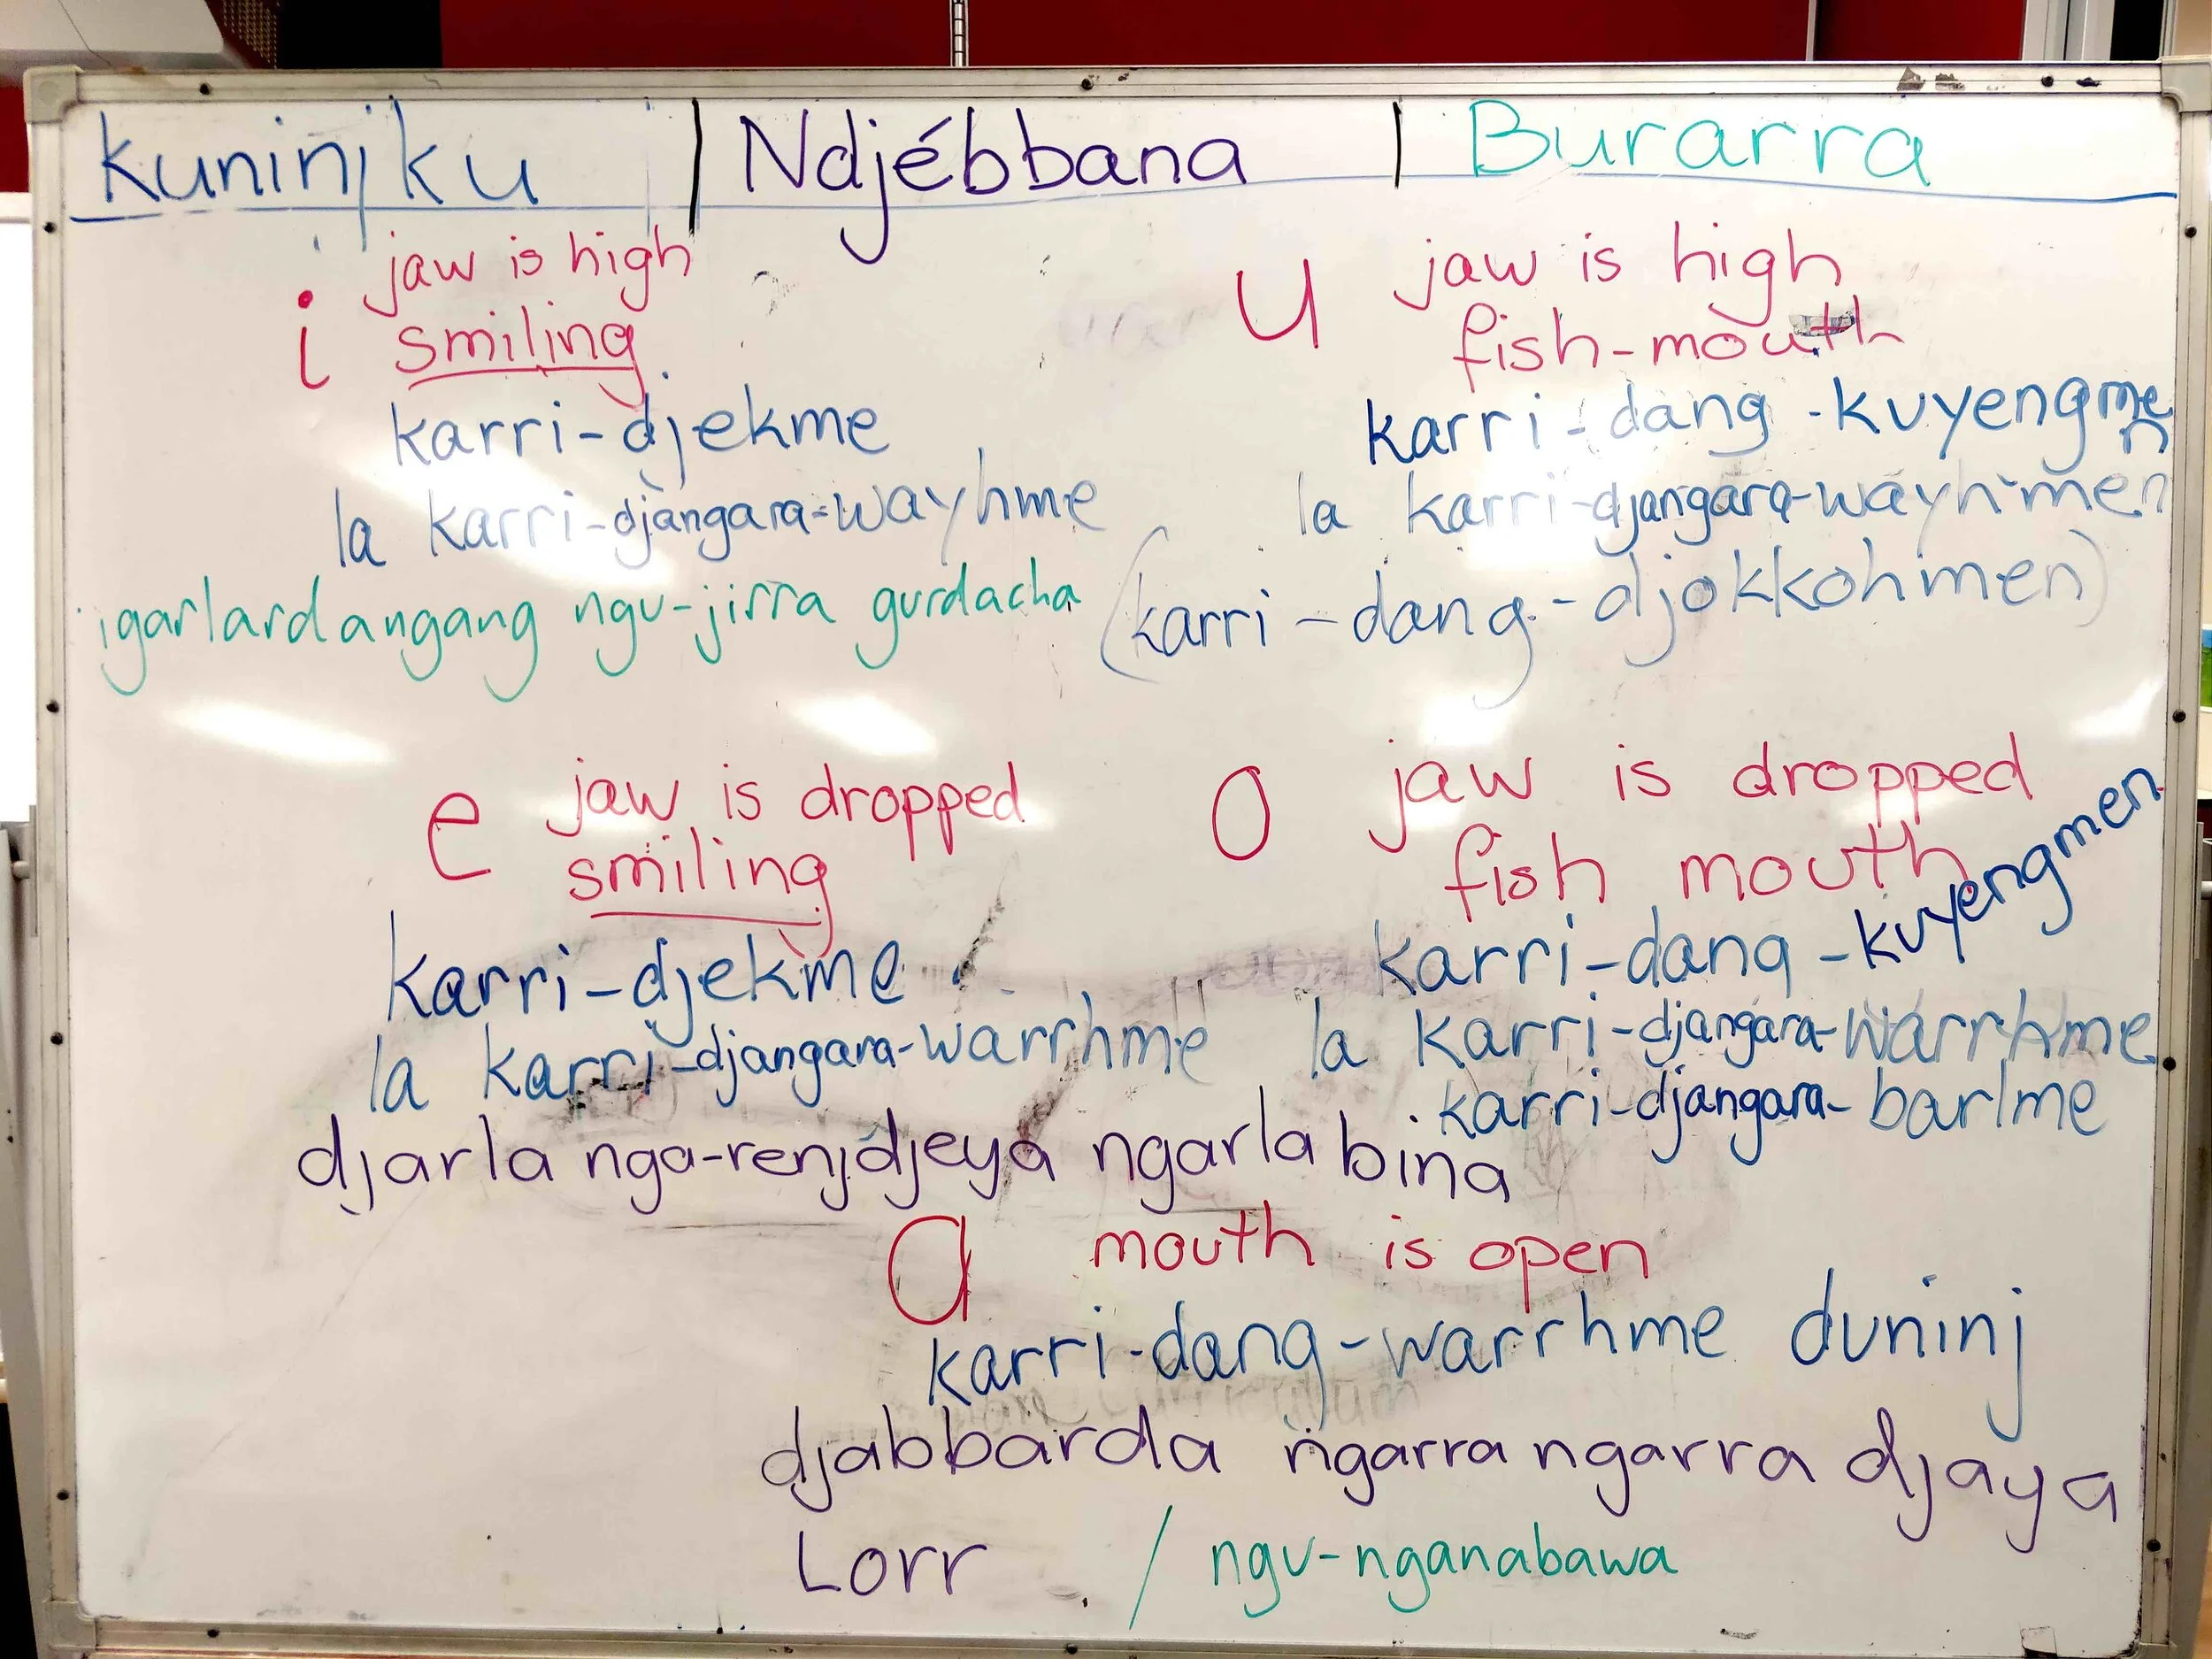 kuninjku | Ndjébbana | Burarra
i jaw is high
smiling
karri-djekme
la karri-djangara-wayhme
igarlardangang ngu-jirra gurdacha
u jaw is high
fish-mouth
karri-dang-kuyengmen
la karri-djangara-wayhmen
(karri-dang-djokkohmen)
e jaw is dropped
smiling
karri-djekme
la karri-djangara-warrhme
djarla nga-renjdjeya ngarlabina
o jaw is dropped
fish mouth
karri-dang-kuyengmen
la karri-djangara-warrhme
karri-djangara-barlme
a mouth is open
karri-dang-warrhme duninj
djabbarda ngarrangarra djaya
Lorr / ngu-nganabawa